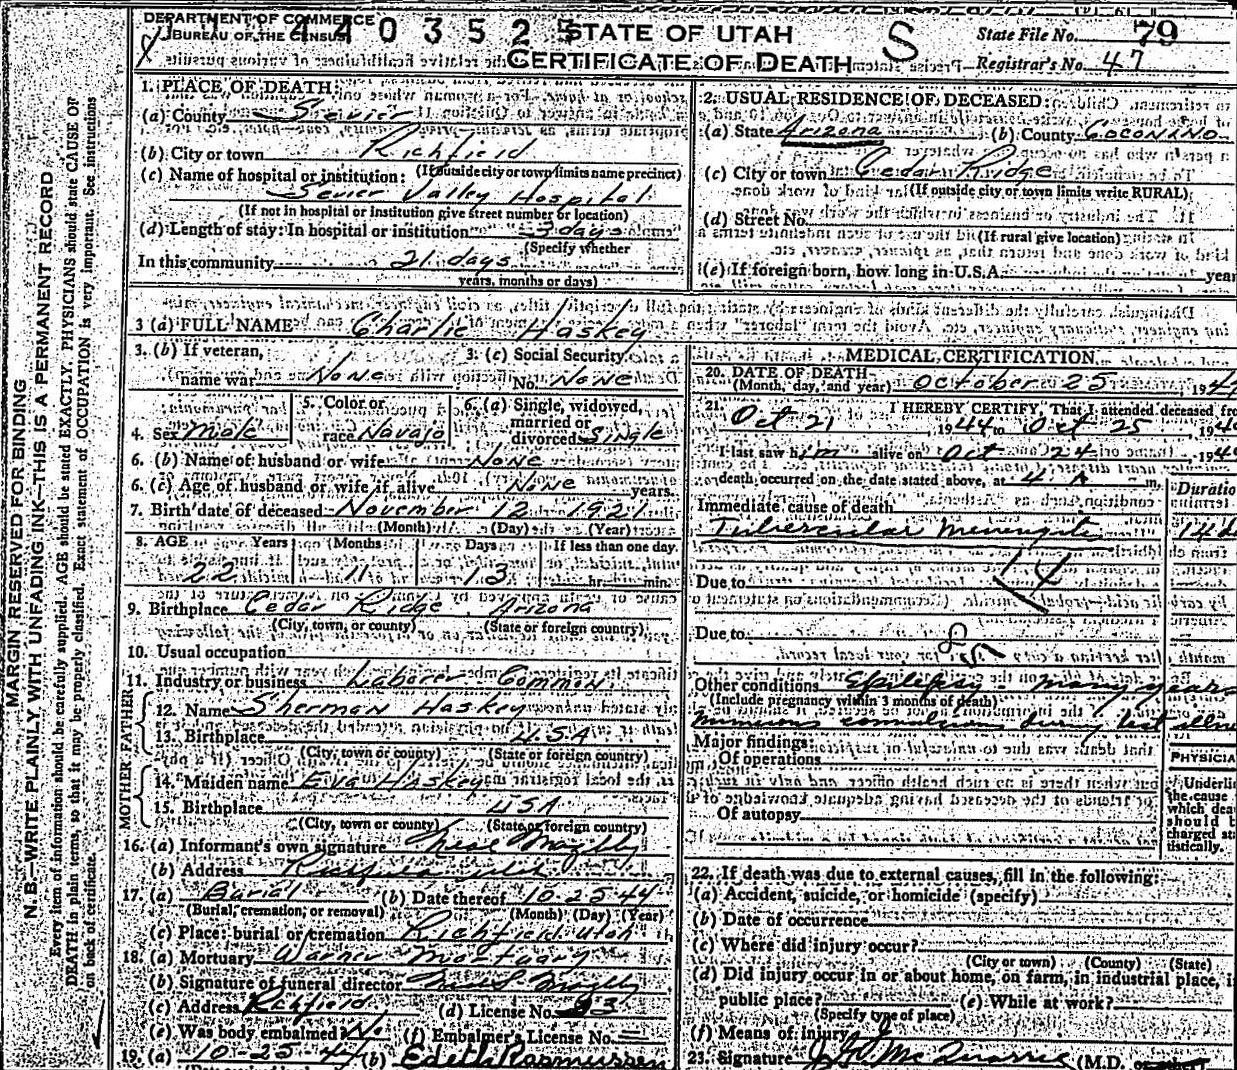 DEPARTMENT OF COMMERCE
BUREAU OF THE CENSUS
440352
STATE OF UTAH
CERTIFICATE OF DEATH
S
State File No. 79
Registrar's No. 47
MARGIN RESERVED FOR BINDING
N. B.—WRITE PLAINLY WITH UNFADING INK—THIS IS A PERMANENT RECORD
Every item of information should be carefully supplied. AGE should be stated EXACTLY. PHYSICIANS should state CAUSE OF
DEATH in plain terms, so that it may be properly classified. Exact statement of OCCUPATION is very important. See instructions
on back of certificate.
1. PLACE OF DEATH:
(a) County Sevier
(b) City or town Richfield
(If outside city or town limits name precinct)
(c) Name of hospital or institution:
Sevier Valley Hospital
(If not in hospital or institution give street number or location)
(d) Length of stay: In hospital or institution 3 days
(Specify whether
In this community 21 days
years, months or days)
2. USUAL RESIDENCE OF DECEASED:
(a) State Arizona (b) County Coconino
(c) City or town Cedar Ridge
(If outside city or town limits write RURAL)
(d) Street No.
(If rural give location)
(e) If foreign born, how long in U.S.A. year
3 (a) FULL NAME Charlie Haskey
3. (b) If veteran, name war None
3. (c) Social Security No. None
4. Sex Male
5. Color or race Navajo
6. (a) Single, widowed, married or divorced Single
6. (b) Name of husband or wife None
6. (c) Age of husband or wife if alive None years
7. Birth date of deceased November 12 1921
(Month) (Day) (Year)
8. AGE Years Months Days If less than one day
22 11 13 hr. min.
9. Birthplace Cedar Ridge Arizona
(City, town, or county) (State or foreign country)
10. Usual occupation
11. Industry or business Laborer Common
FATHER
12. Name Sherman Haskey
13. Birthplace USA
(City, town or county) (State or foreign country)
MOTHER
14. Maiden name Eva Haskey
15. Birthplace USA
(City, town or county) (State or foreign country)
16. (a) Informant's own signature
(b) Address Richfield Utah
17. (a) Burial (b) Date thereof 10-25-44
(Burial, cremation, or removal) (Month) (Day) (Year)
(c) Place: burial or cremation Richfield Utah
18. (a) Mortuary Warner Mortuary
(b) Signature of funeral director
(c) Address Richfield (d) License No. 93
(e) Was body embalmed No (f) Embalmer's License No.
19. (a) 10-25-44 (b) Edith Rasmussen
MEDICAL CERTIFICATION
20. DATE OF DEATH
(Month, day, and year) October 25 194
21. I HEREBY CERTIFY, That I attended deceased fro
Oct 21, 1944 to Oct 25, 194
I last saw him alive on Oct 24, 194
death occurred on the date stated above, at 4 A m.
Immediate cause of death Duratio
Tubercular Meningitis 14
Due to
Due to
Other conditions Epilepsy - many years
(Include pregnancy within 3 months of death)
convulsions during last
Major findings:
Of operations
Of autopsy
PHYSICIA
Underli
the cause
which dea
should b
charged sta
tistically.
22. If death was due to external causes, fill in the following:
(a) Accident, suicide, or homicide (specify)
(b) Date of occurrence
(c) Where did injury occur?
(City or town) (County) (State)
(d) Did injury occur in or about home, on farm, in industrial place, i
public place? (e) While at work?
(Specify type of place)
(f) Means of injury
23. Signature McQuarrie (M.D. or other)